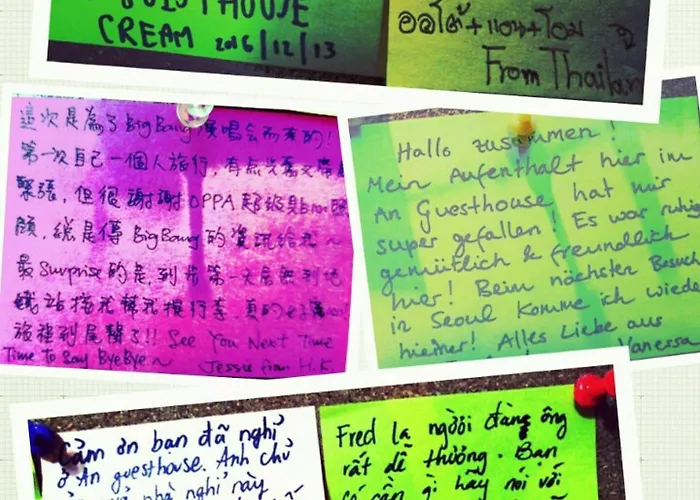 GUESTHOUSE
CREAM 2016/12/13
From Thailan
這次是為了BigBang演唱會而來的!
第一次自己一個人旅行,有点兴奋又帶点
緊張,但很謝謝OPPA超級貼心照
顧,總是傳BigBang的資訊給我~
最Surprise的是,到步第一天居然到地
鐵站接我幫我搬行李,真的好
旅程到尾聲了!! See You Next Time
Time To Say ByeBye~ Jessie from H.K.
Hallo zusammen!
Mein Aufenthalt hier im
An Guesthouse hat mir
super gefallen! Es war ruhig
gemütlich & freundlich
hier! Beim nächsten Besuch
in Seoul komme ich wiede
hierher! Alles Liebe aus
Vanessa
Cảm ơn bạn đã nghỉ
ở An guesthouse. Anh chủ
nhà nghỉ này
Fred là người đàng ông
rất dễ thương. Bạn
có cần gì hãy nói với